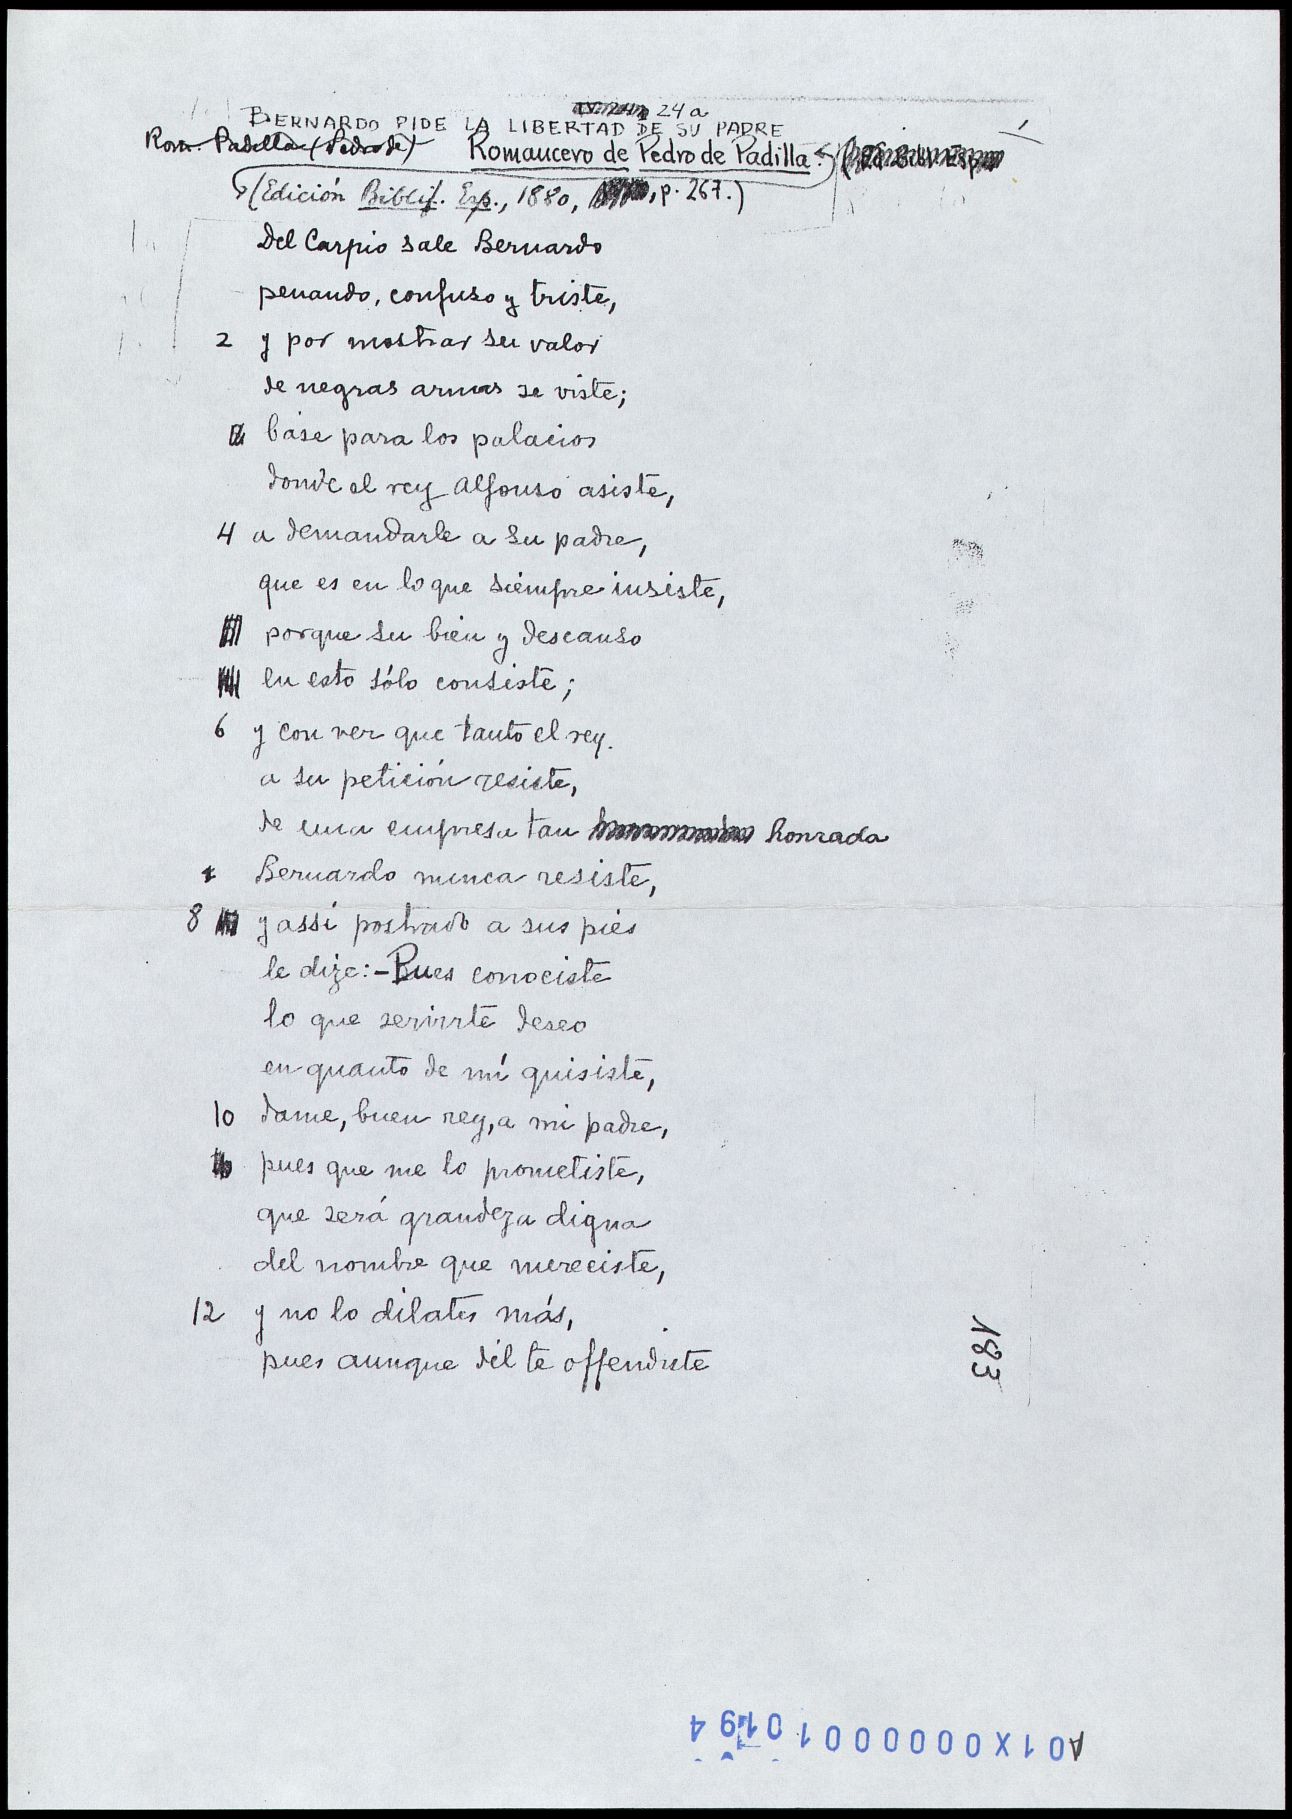 24a
BERNARDO PIDE LA LIBERTAD DE SU PADRE
Rom. Padilla (Pedro de) Romancero de Pedro de Padilla.
(Edición Biblióf. Esp., 1880, p. 267.)
Del Carpio sale Bernardo
penando, confuso y triste,
2 y por mostrar su valor
de negras armas se viste;
báse para los palacios
donde el rey Alfonso asiste,
4 a demandarle a su padre,
que es en lo que siempre insiste,
porque su bien y descanso
en esto sólo consiste;
6 y con ver que tanto el rey
a su petición resiste,
de una empresa tan honrada
Bernardo nunca resiste,
8 y assí postrado a sus pies
le dize: -Pues conociste
lo que servirte deseo
en quanto de mí quisiste,
10 dame, buen rey, a mi padre,
pues que me lo prometiste,
que será grandeza digna
del nombre que mereciste,
12 y no lo dilates más,
pues aunque dél te offendiste
183
A01X00000010194